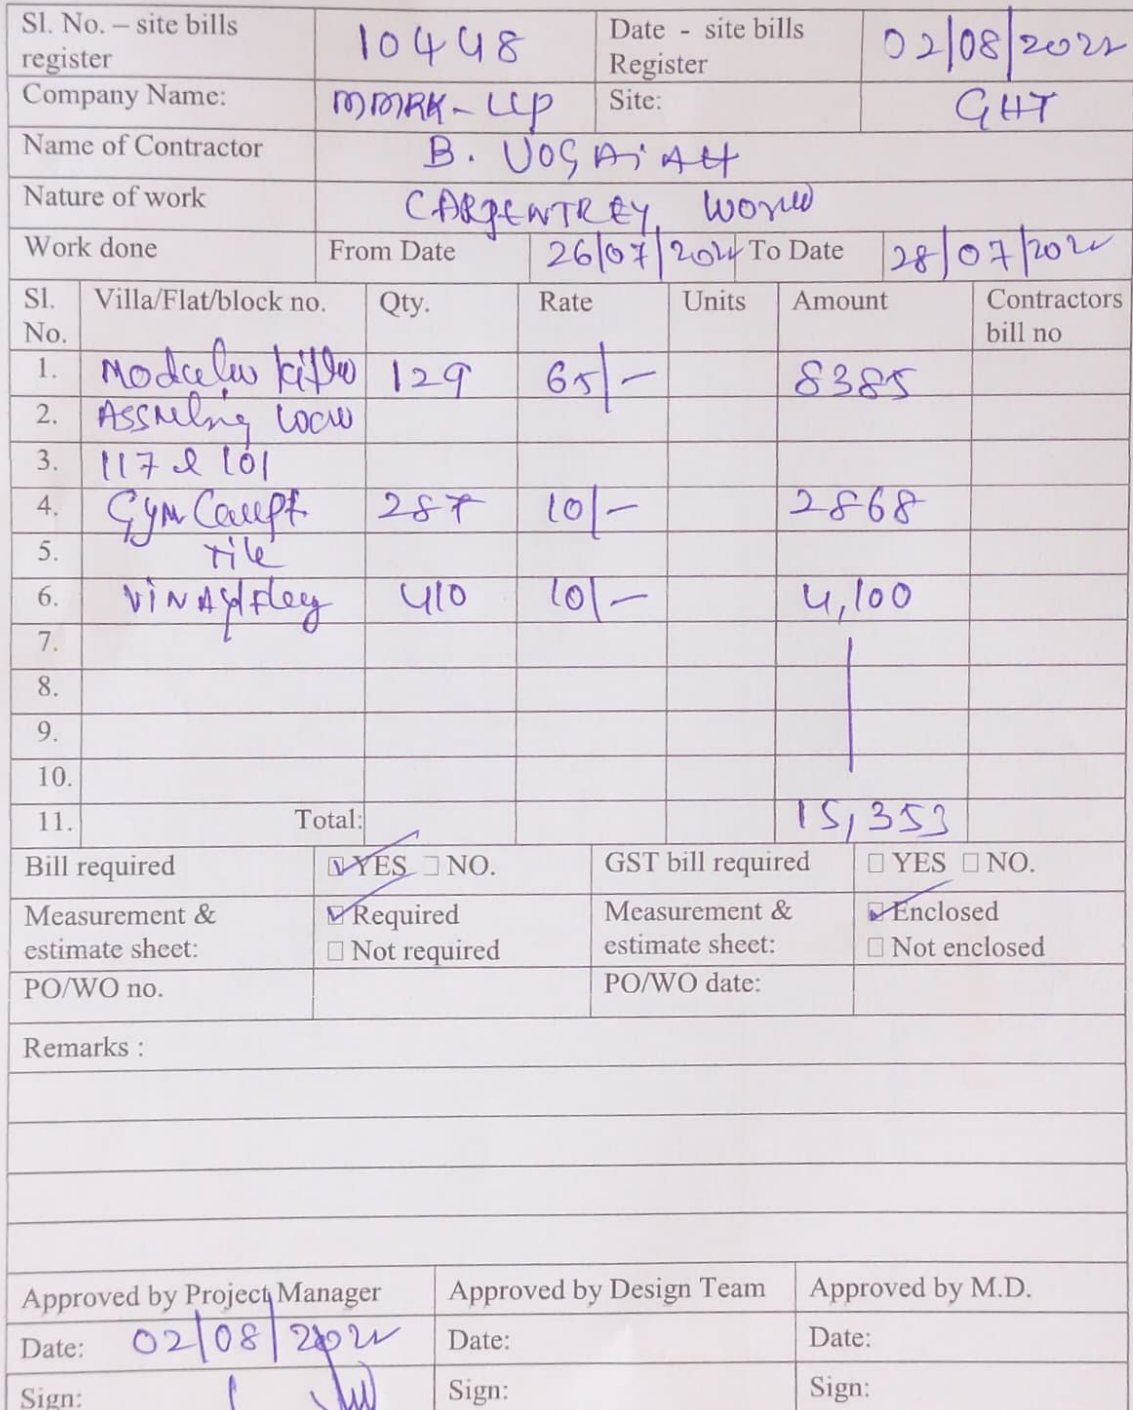 Sl. No. – site bills register 10448 Date - site bills Register 02/08/2022
Company Name: MMRK-LLP Site: GHT
Name of Contractor B.
Nature of work CARPENTREY
Work done From Date 26/07/2022 To Date 28/07/2022
Sl. No. Villa/Flat/block no. Qty. Rate Units Amount Contractors bill no
1. 129 65/- 8385
2.
3. 117 & 101
4. Gym 287 10/- 2868
5. Tile
6. 410 10/- 4,100
7.
8.
9.
10.
11. Total: 15,353
Bill required YES NO. GST bill required YES NO.
Measurement & estimate sheet: Required Not required Measurement & estimate sheet: Enclosed Not enclosed
PO/WO no. PO/WO date:
Remarks :
Approved by Project Manager Approved by Design Team Approved by M.D.
Date: 02/08/2022 Date: Date:
Sign: Sign: Sign: